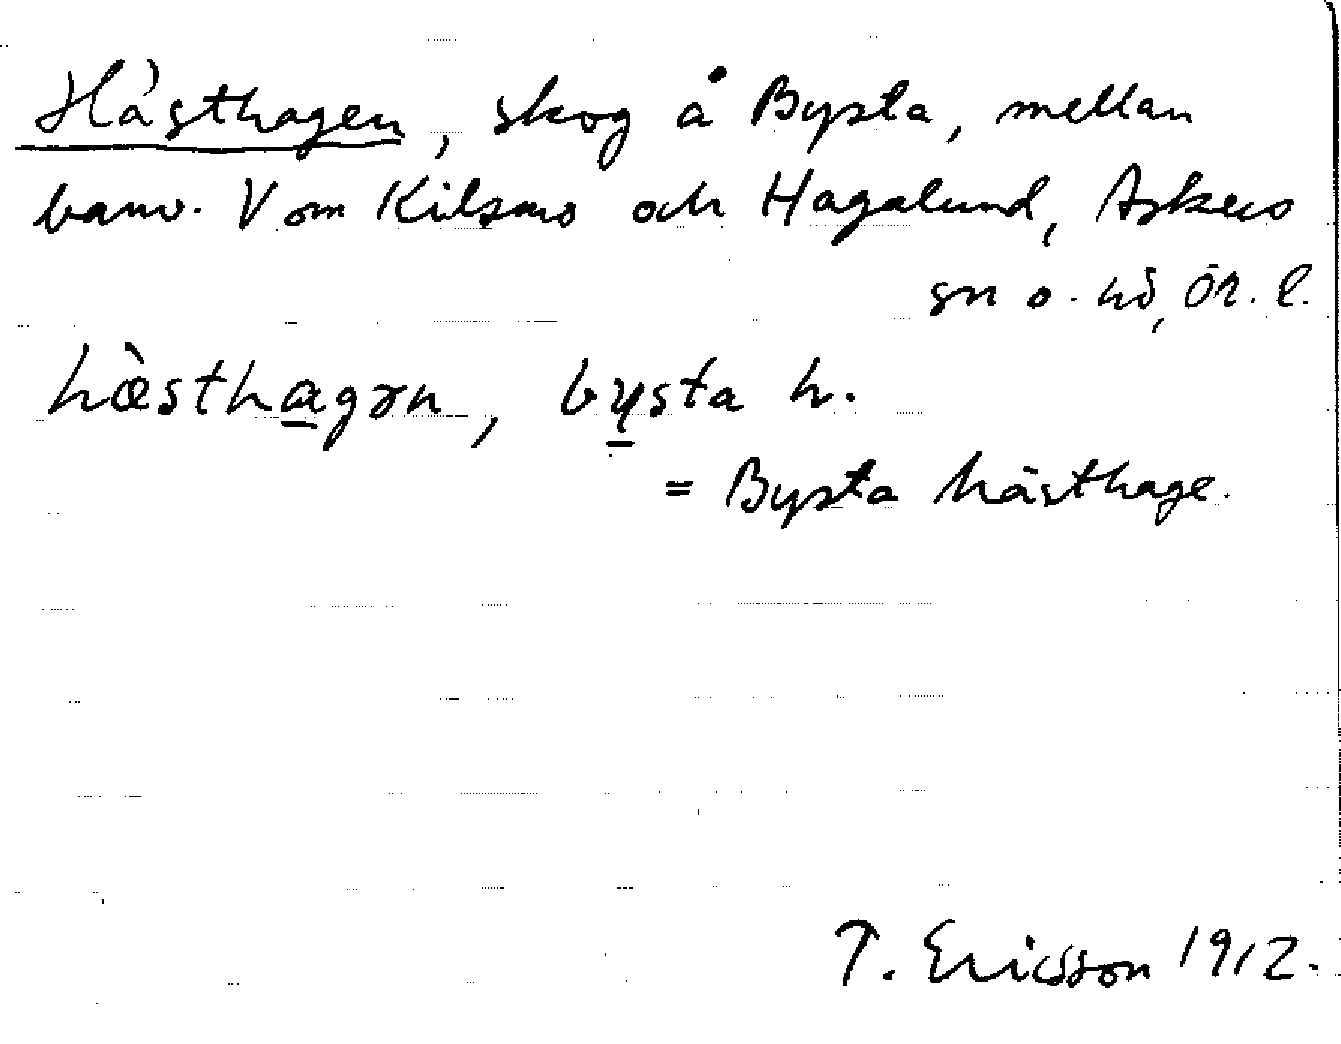 Hästhagen, skog å Bysta, mellan
banv. V om Kilsmo och Hagalund, Askers
sn o. hd, Ör. l.
hæ̀stha̲gən, by̲sta h.
= Bysta hästhage.
T. Ericsson 1912.